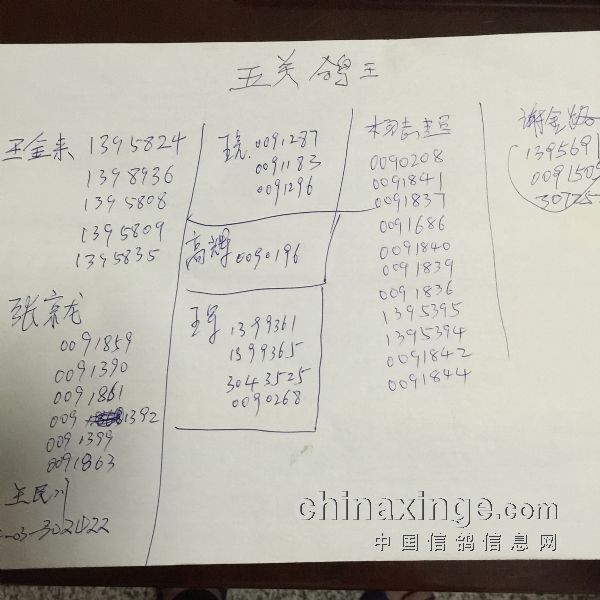 五关鸽王
王金来 1395824
1398936
1395808
1395809
1395835
张京龙
0091859
0091390
0091861
0091392
0091399
0091863
王民
03-302422
王亮 0091287
0091183
0091296
高辉 0090196
王军 1399361
1399365
3043525
0090268
0090208
0091841
0091837
0091686
0091840
0091839
0091836
1395395
1395394
0091842
0091844
谢金
1395691
chinaxinge.com
中国信鸽信息网